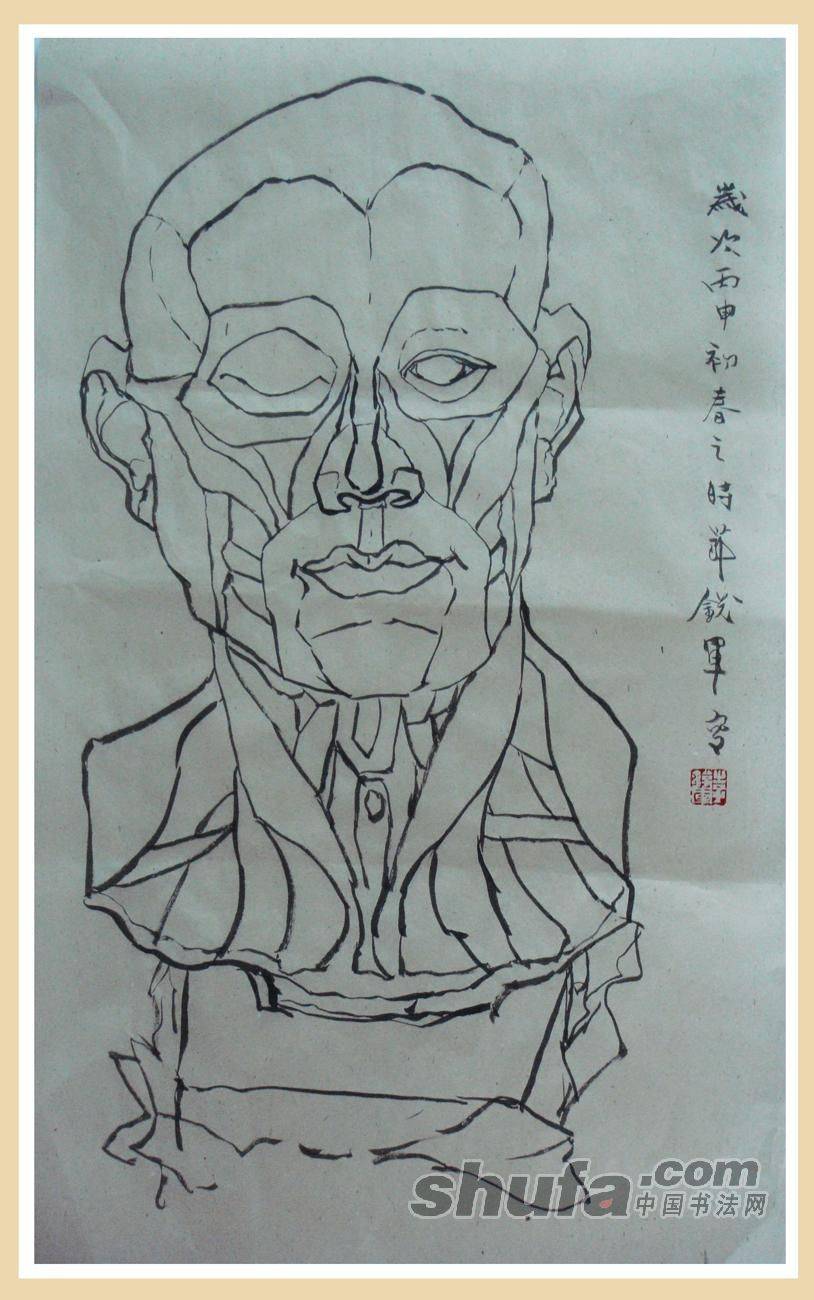 歲次丙申初春之時茆銳軍寫
shufa.com
中国书法网